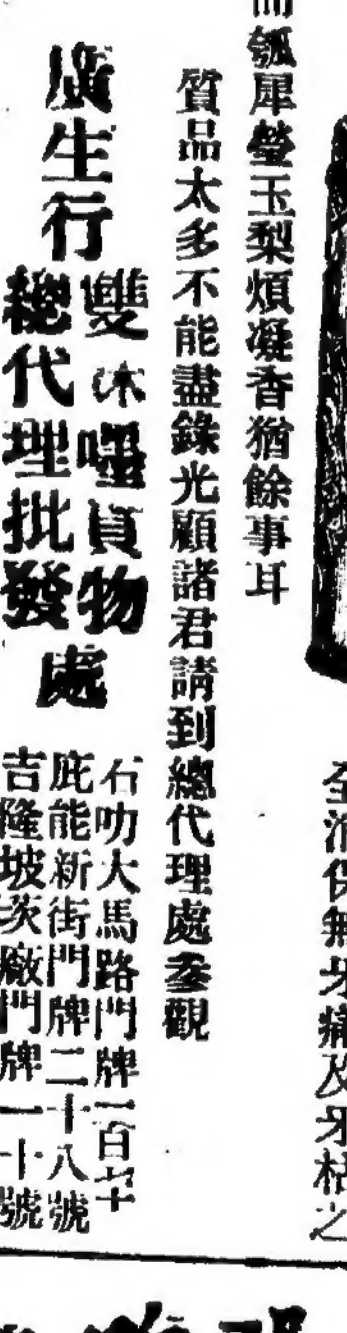 全消保無牙痛及牙枯之
而瓠犀瑩玉梨煩凝香猶餘事耳
質品太多不能盡錄光顧諸君請到總代理處參觀
廣生行
雙嚜貨物
總代理批發
處
石叻大馬路門牌一百七十
庇能新街門牌二十八號
吉隆坡茨廠門牌一十號